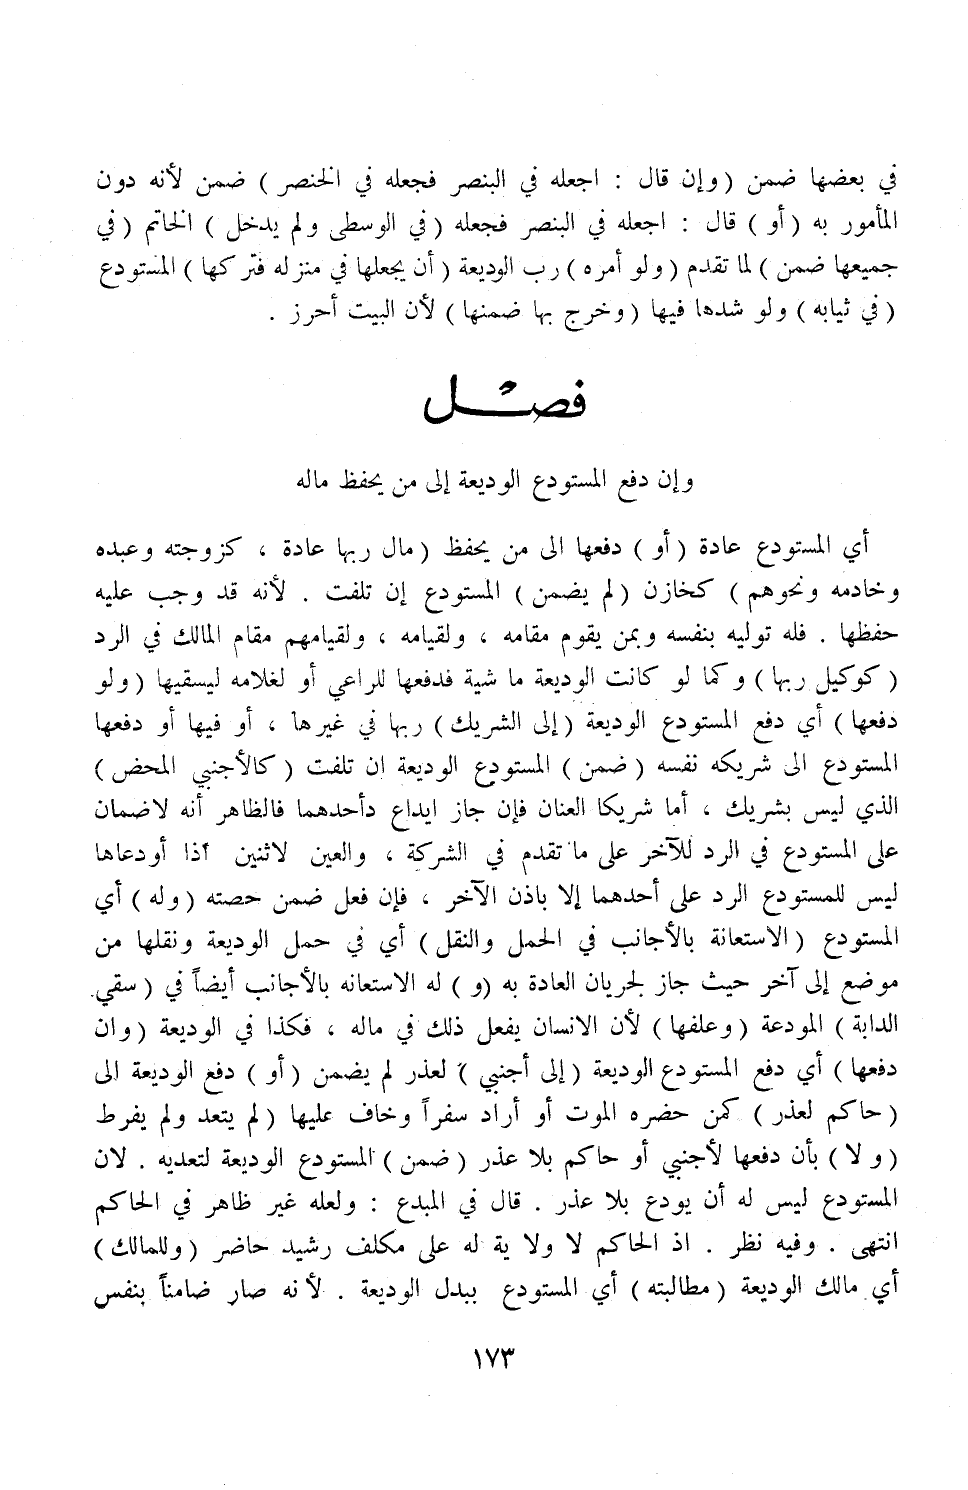 في بعضها ضمن ( وإن قال : اجعله في البنصر فجعله في الخنصر ) ضمن لأنه دون
المأمور به ( أو ) قال : اجعله في البنصر فجعله ( في الوسطى ولم يدخل ) الخاتم ( في
جميعها ضمن ) لما تقدم ( ولو أمره ) رب الوديعة ( أن يجعلها في منزله فتركها ) المستودع
( في ثيابه ) ولو شدها فيها ( وخرج بها ضمنها ) لأن البيت أحرز .
فصل
وإن دفع المستودع الوديعة إلى من يحفظ ماله
أي المستودع عادة ( أو ) دفعها الى من يحفظ ( مال ربها عادة ، كزوجته وعبده
وخادمه ونحوهم ) كخازن ( لم يضمن ) المستودع إن تلفت . لأنه قد وجب عليه
حفظها . فله توليه بنفسه وبمن يقوم مقامه ، ولقيامه ، ولقيامهم مقام المالك في الرد
( كوكيل ربها ) وكما لو كانت الوديعة ما شية فدفعها للراعي أو لغلامه ليسقيها ( ولو
دفعها ) أي دفع المستودع الوديعة ( إلى الشريك ) ربها في غيرها ، أو فيها أو دفعها
المستودع الى شريكه نفسه ( ضمن ) المستودع الوديعة ان تلفت ( كالأجنبي المحض )
الذي ليس بشريك ، أما شريكا العنان فإن جاز ايداع دأحدهما فالظاهر أنه لاضمان
على المستودع في الرد للآخر على ما تقدم في الشركة ، والعين لاثنين آذا أودعاها
ليس للمستودع الرد على أحدهما إلا باذن الآخر ، فإن فعل ضمن حصته ( وله ) أي
المستودع ( الاستعانة بالأجانب في الحمل والنقل ) أي في حمل الوديعة ونقلها من
موضع إلى آخر حيث جاز لجريان العادة به ( و ) له الاستعانه بالأجانب أيضاً في ( سقي
الدابة ) المودعة ( وعلفها ) لأن الانسان يفعل ذلك في ماله ، فكذا في الوديعة ( وان
دفعها ) أي دفع المستودع الوديعة ( إلى أجنبي ) لعذر لم يضمن ( أو ) دفع الوديعة الى
( حاكم لعذر ) كمن حضره الموت أو أراد سفراً وخاف عليها ( لم يتعد ولم يفرط
( و لا ) بأن دفعها لأجنبي أو حاكم بلا عذر ( ضمن ) المستودع الوديعة لتعديه . لان
المستودع ليس له أن يودع بلا عذر . قال في المبدع : ولعله غير ظاهر في الحاكم
انتهى . وفيه نظر . اذ الحاكم لا ولا ية له على مكلف رشيد حاضر ( وللمالك )
أي مالك الوديعة ( مطالبته ) أي المستودع ببدل الوديعة . لأنه صار ضامناً بنفس
١٧٣